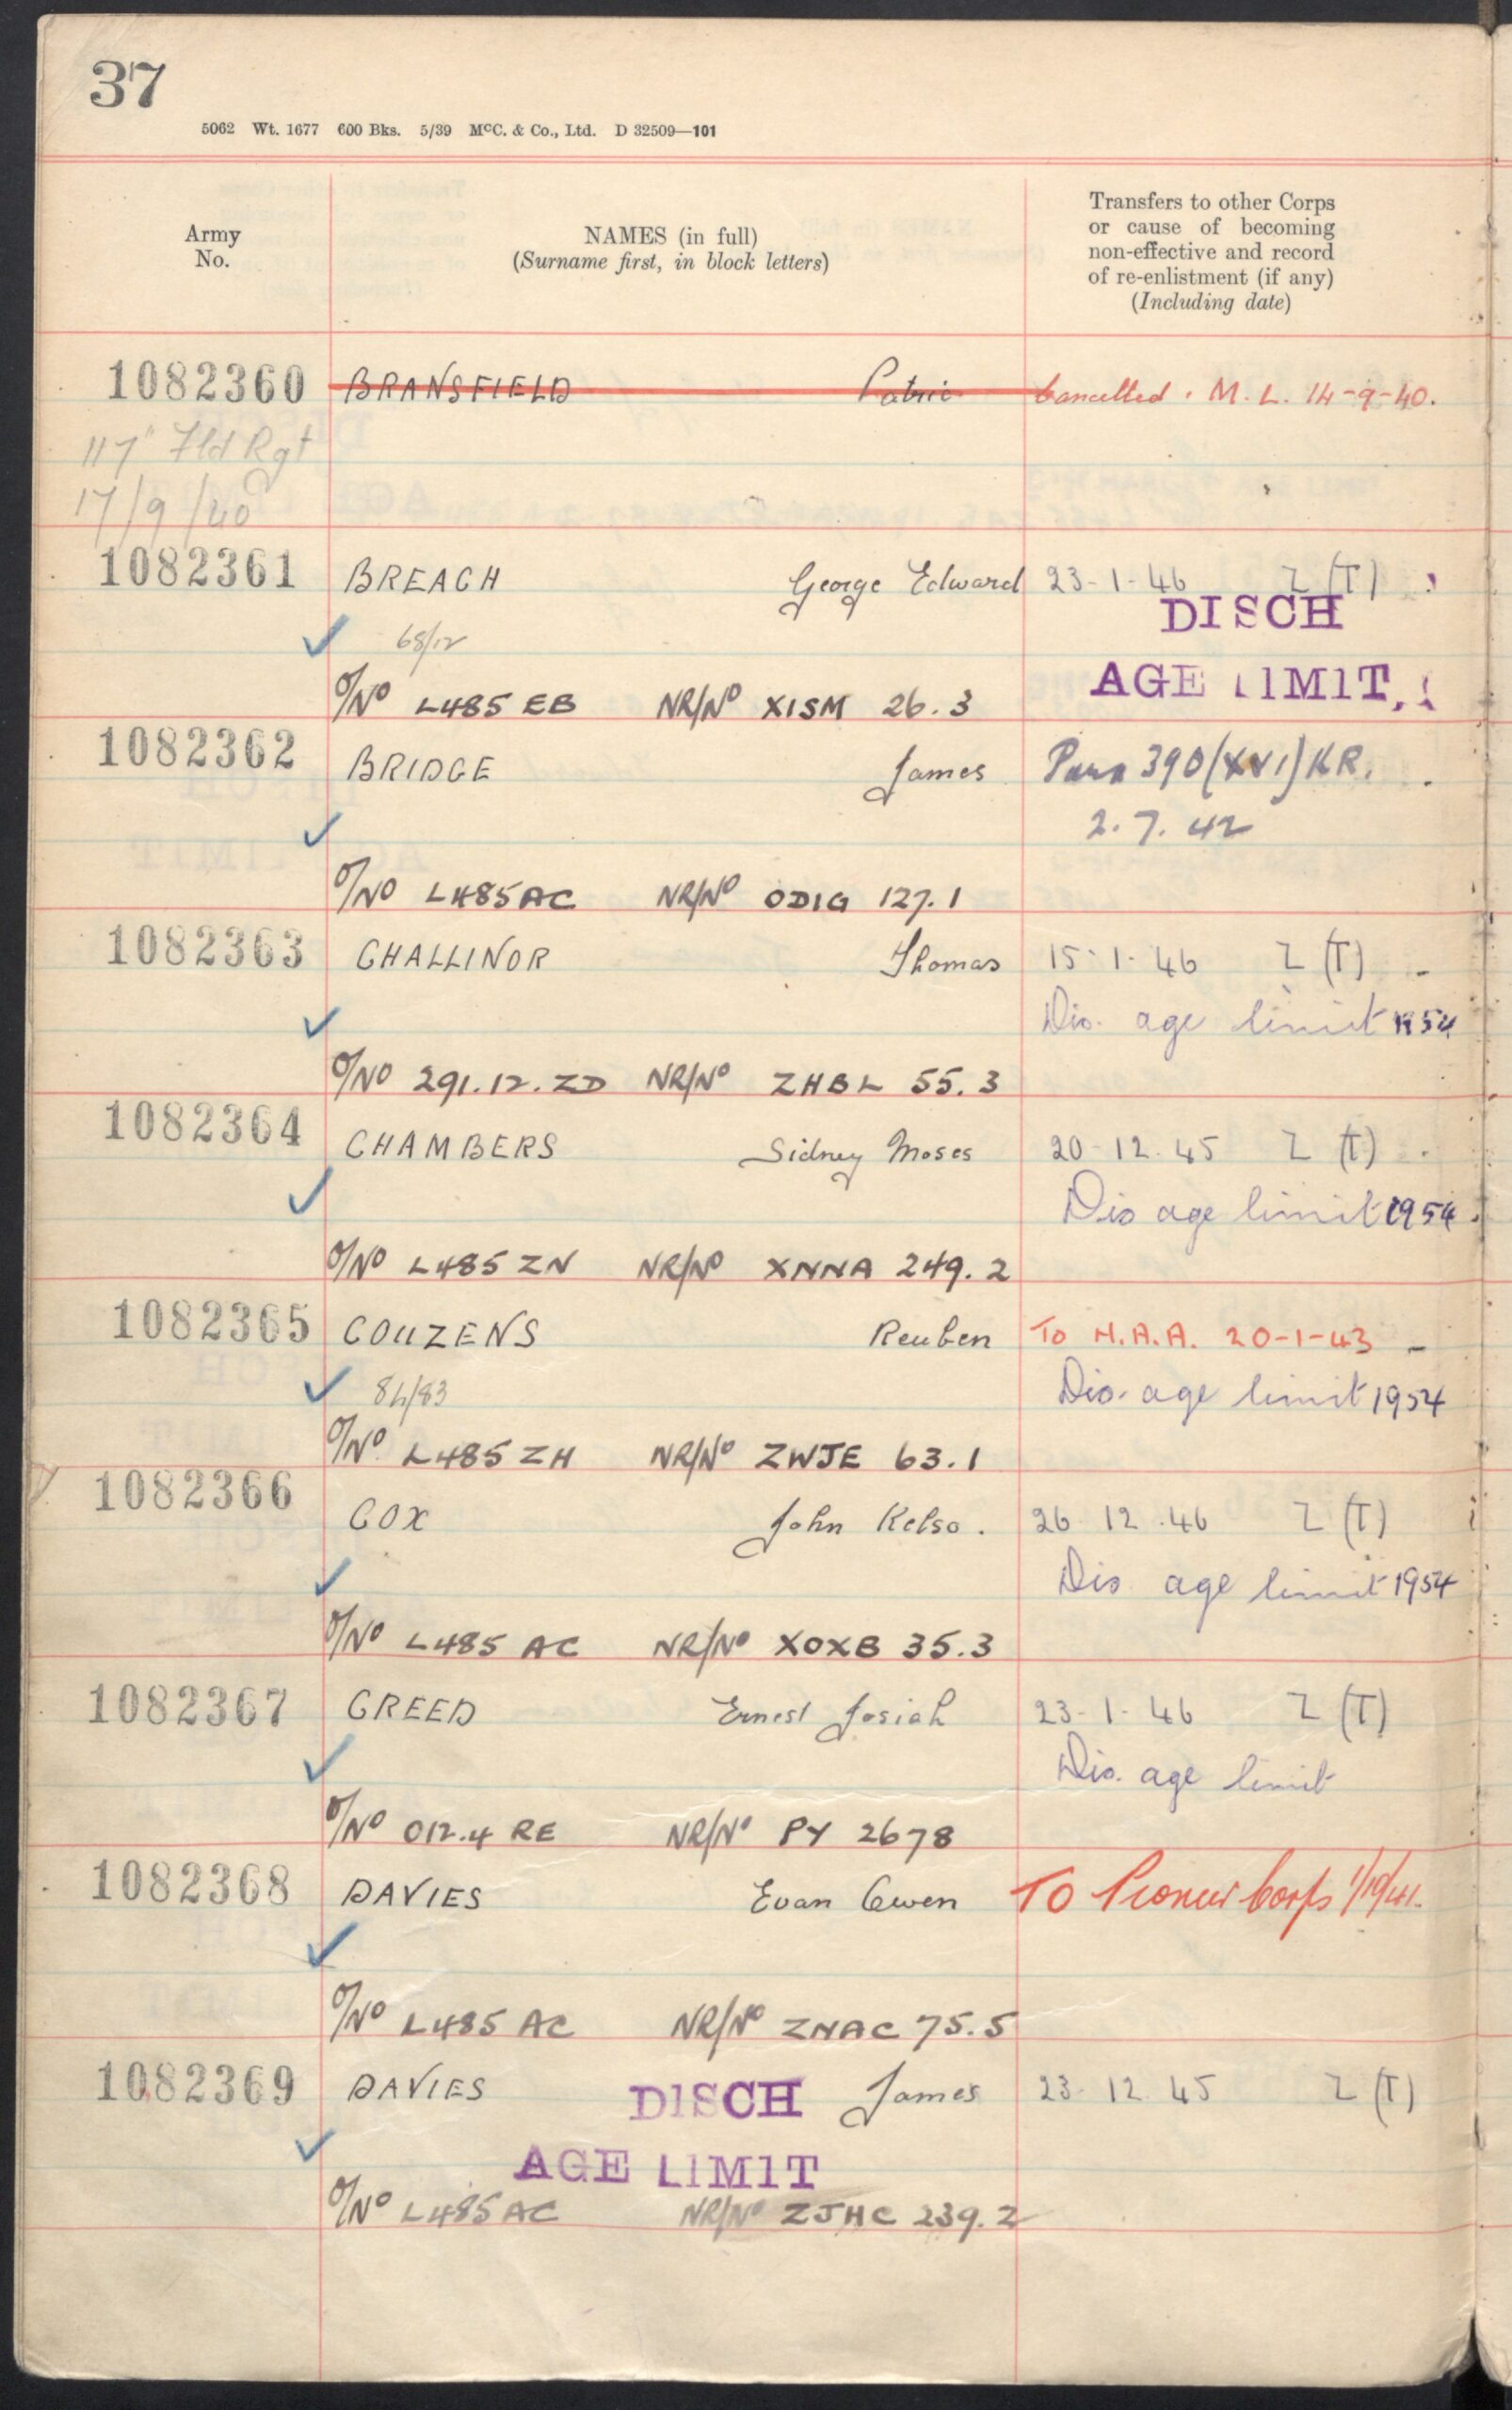 37
5062 Wt. 1677 600 Bks. 5/39 McC. & Co., Ltd. D 32509—101
Army No.
NAMES (in full)
(Surname first, in block letters)
Transfers to other Corps
or cause of becoming
non-effective and record
of re-enlistment (if any)
(Including date)
1082360 BRANSFIELD Patric Cancelled . M. L. 14-9-40.
117" Fld Rgt
17/9/40
1082361 BREACH George Edward 23-1-46 Z (T)
DISCH
68/12
AGE LIMIT
O/No L485 EB NR/No XISM 26.3
1082362 BRIDGE James Para 390(XVI)KR.
2.7.42
O/No L485AC NR/No ODIG 127.1
1082363 CHALLINOR Thomas 15-1-46 Z (T)
Dis. age limit 1954
O/No 291.12.ZD NR/No ZHBL 55.3
1082364 CHAMBERS Sidney Moses 20-12.45 Z (T)
Dis age limit 1954
O/No L485 ZN NR/No XNNA 249.2
1082365 COUZENS Reuben To H.A.A. 20-1-43
84/83 Dis. age limit 1954
O/No L485 ZH NR/No ZWJE 63.1
1082366 COX John Kelso. 26 12.46 Z (T)
Dis age limit 1954
O/No L485 AC NR/No XOXB 35.3
1082367 CREED Ernest Josiah 23-1-46 Z (T)
Dis. age limit
O/No 012.4 RE NR/No PY 2678
1082368 DAVIES Evan Owen TO Pioneer Corps 1/10/41.
O/No L485 AC NR/No ZNAC 75.5
1082369 DAVIES DISCH James 23 12 45 Z (T)
AGE LIMIT
O/No L485 AC NR/No ZJHC 239.2